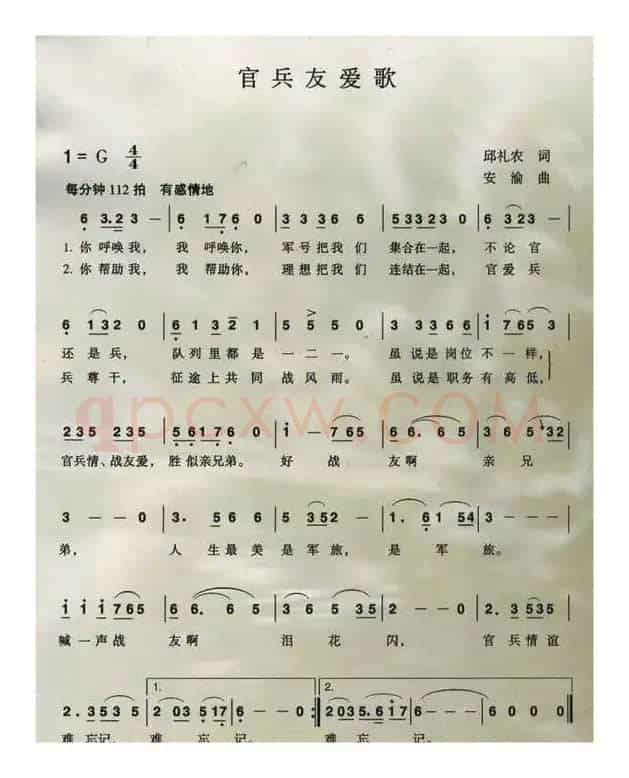 官兵友爱歌
1=G 4/4
邱礼农 词
每分钟112拍 有感情地
安渝 曲
6 3.2 3 — | 6 1 7 6 0 | 3 3 3 6 6 | 5 3 3 2 3 0 | 6 3 2 3 — |
1. 你 呼唤 我， 我 呼唤 你， 军 号 把 我 们 集合在一起， 不 论 官
2. 你 帮助 我， 我 帮助 你， 理 想 把 我 们 连结在一起， 官 爱 兵
6 1 3 2 0 | 6 1 3 2 1 | 5 5 5 0 | 3 3 3 6 6 | 1 7 6 5 3 |
还 是 兵， 队 列 里 都 是 一 二 一。 虽 说 是 岗 位 不 一 样，
兵 尊 干， 征 途 上 共 同 战 风 雨。 虽 说 是 职 务 有 高 低，
qpcxw.COM
2 3 5 2 3 5 | 5 6 1 7 6 0 | 1 — 7 6 5 | 6 6. 6 5 | 3 6 5 3 2 |
官兵情、战友爱， 胜 似亲兄弟。 好 战 友啊 亲 兄
3 — — 0 | 3. 5 6 6 | 5 3 5 2 — | 1. 6 1 5 4 | 3 — — — |
弟， 人 生 最 美 是 军 旅， 是 军 旅。
1 1 1 7 6 5 | 6 6. 6 5 | 3 6 5 3 5 | 2 — — 0 | 2. 3 5 3 5 |
喊 一 声 战 友啊 泪 花 闪， 官 兵 情 谊
1.
2.
2. 3 5 3 5 | 2 0 3 5 1 7 | 6 — — 0 :| 2 0 3 5. 6 1 7 | 6 — — — | 6 0 0 0 |
难 忘记， 难 忘 记。 难 忘 记。